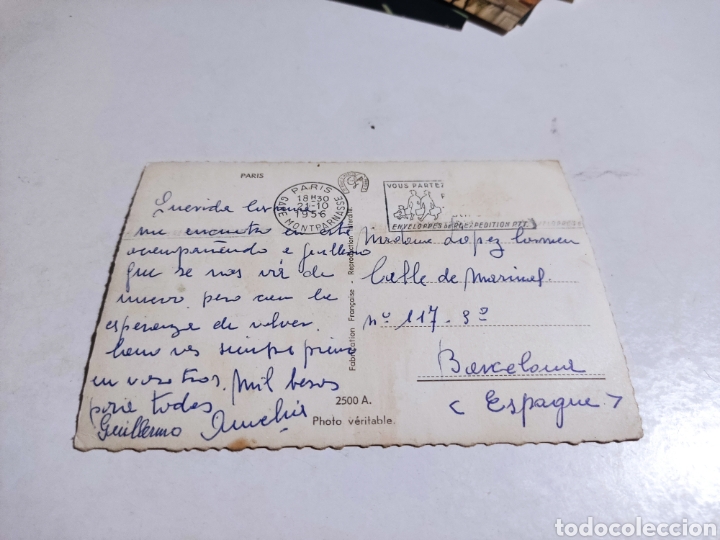 PARIS
PARIS
18H30
21-10
1956
GARE MONTPARNASSE
VOUS PARTEZ
ENVELOPPES DE RÉEXPEDITION PTT
Querida
me encuentro en este
acompañando a Guillermo
que se nos vá de
nuevo pero con la
esperanza de volver.
como ves siempre pienso
en vosotros. Mil besos
para todos
Guillermo
Madame López Carmen
Calle de
nº 117 - 3º
Barcelona
(Espagne)
Fabrication Française - Reproduction interdite
2500 A.
Photo véritable.
todocoleccion